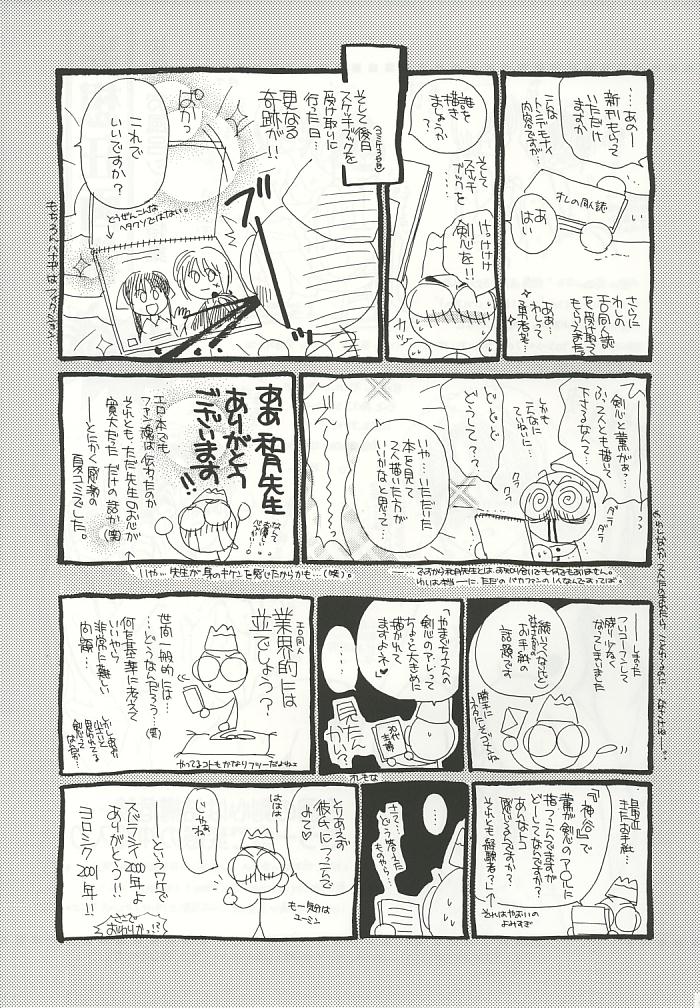 ……あのー
新刊もらって
いただけ
ますか
こんな
トンデモナイ
内容ですが…
オレの同人誌
あ
はい
さらに
わしの
エロ同人誌
を受け取って
もらえました。
ああ…
わしって
勇者が…
誰を
描き
ましょうか
？
そして
スケッチ
ブックを
……
けっけけ
剣心を!!
カッ
そして後日
(コミケ3日目)
スケッチブックを
受け取りに
行った日…
更なる
奇跡が!!
ぱかっ
これで
いいですか？
どうぜんこんな
ヘタクソではない。
ブッ
もちろんハナヂはフィクション…
剣心と薫がぁっ…
ふっ2人とも描いて
下さるなんて…
しかも
こんなに
ていねいに
どどど
どうして？？
クラ
クラ
ダラ
ダラ
いや…いただいた
本を見て
2人描いた方が
いいかなと思って…
……ですから和月先生とは、お知り合いでも何でもありません。
わしは本当ーーに、ただのバカファンの1人なんですってば。
ああ和月先生
ありがとう
ございます!!
なんて
お優しい
心づかい…
エロ本でも
ファン魂は伝わったのか
それとも、ただ先生のお心が
寛大だっただけの話か(笑)
ーーとにかく感激の
夏コミでした。
いや…先生が身のキケンを感じたからかも…(笑)。
ーーしまった
フリコーフンして
残り少なく
なってしまいました
続いてくな(比)
お手紙の
話題です
勝手に
ネタにしてゴメンな
「やまぐちさんの
剣心のアレって
ちょっと大きめに
描かれて
ますよネ♥」
……
見たん
かい？
オレもな
エロ同人
業界的には
並でしょう？
世間一般的には…
…どうなんだろう？…(笑)
何を基準に考えて
いいやら
非常に難しい
問題…
やってるコトもかなりフツーだよねェ
最近
きたお手紙…
「『神谷』で
薫が剣心のア○ルに
指つっこんでますが
どーしてなんですか？
あんなトコ
感じるんですか？
それとも経験者？」
それはやおいの
よみすぎ
……
さて…
どう答えた
ものやら…
とりあえず
彼氏につっこんで
みて♡
ははは…
じゃねー
も一気分は
ユーミン
ーーというワケで
スバラシイ2000年よ
ありがとう!!
ヨロシク2001年!!
そこで
おわりかっ!?